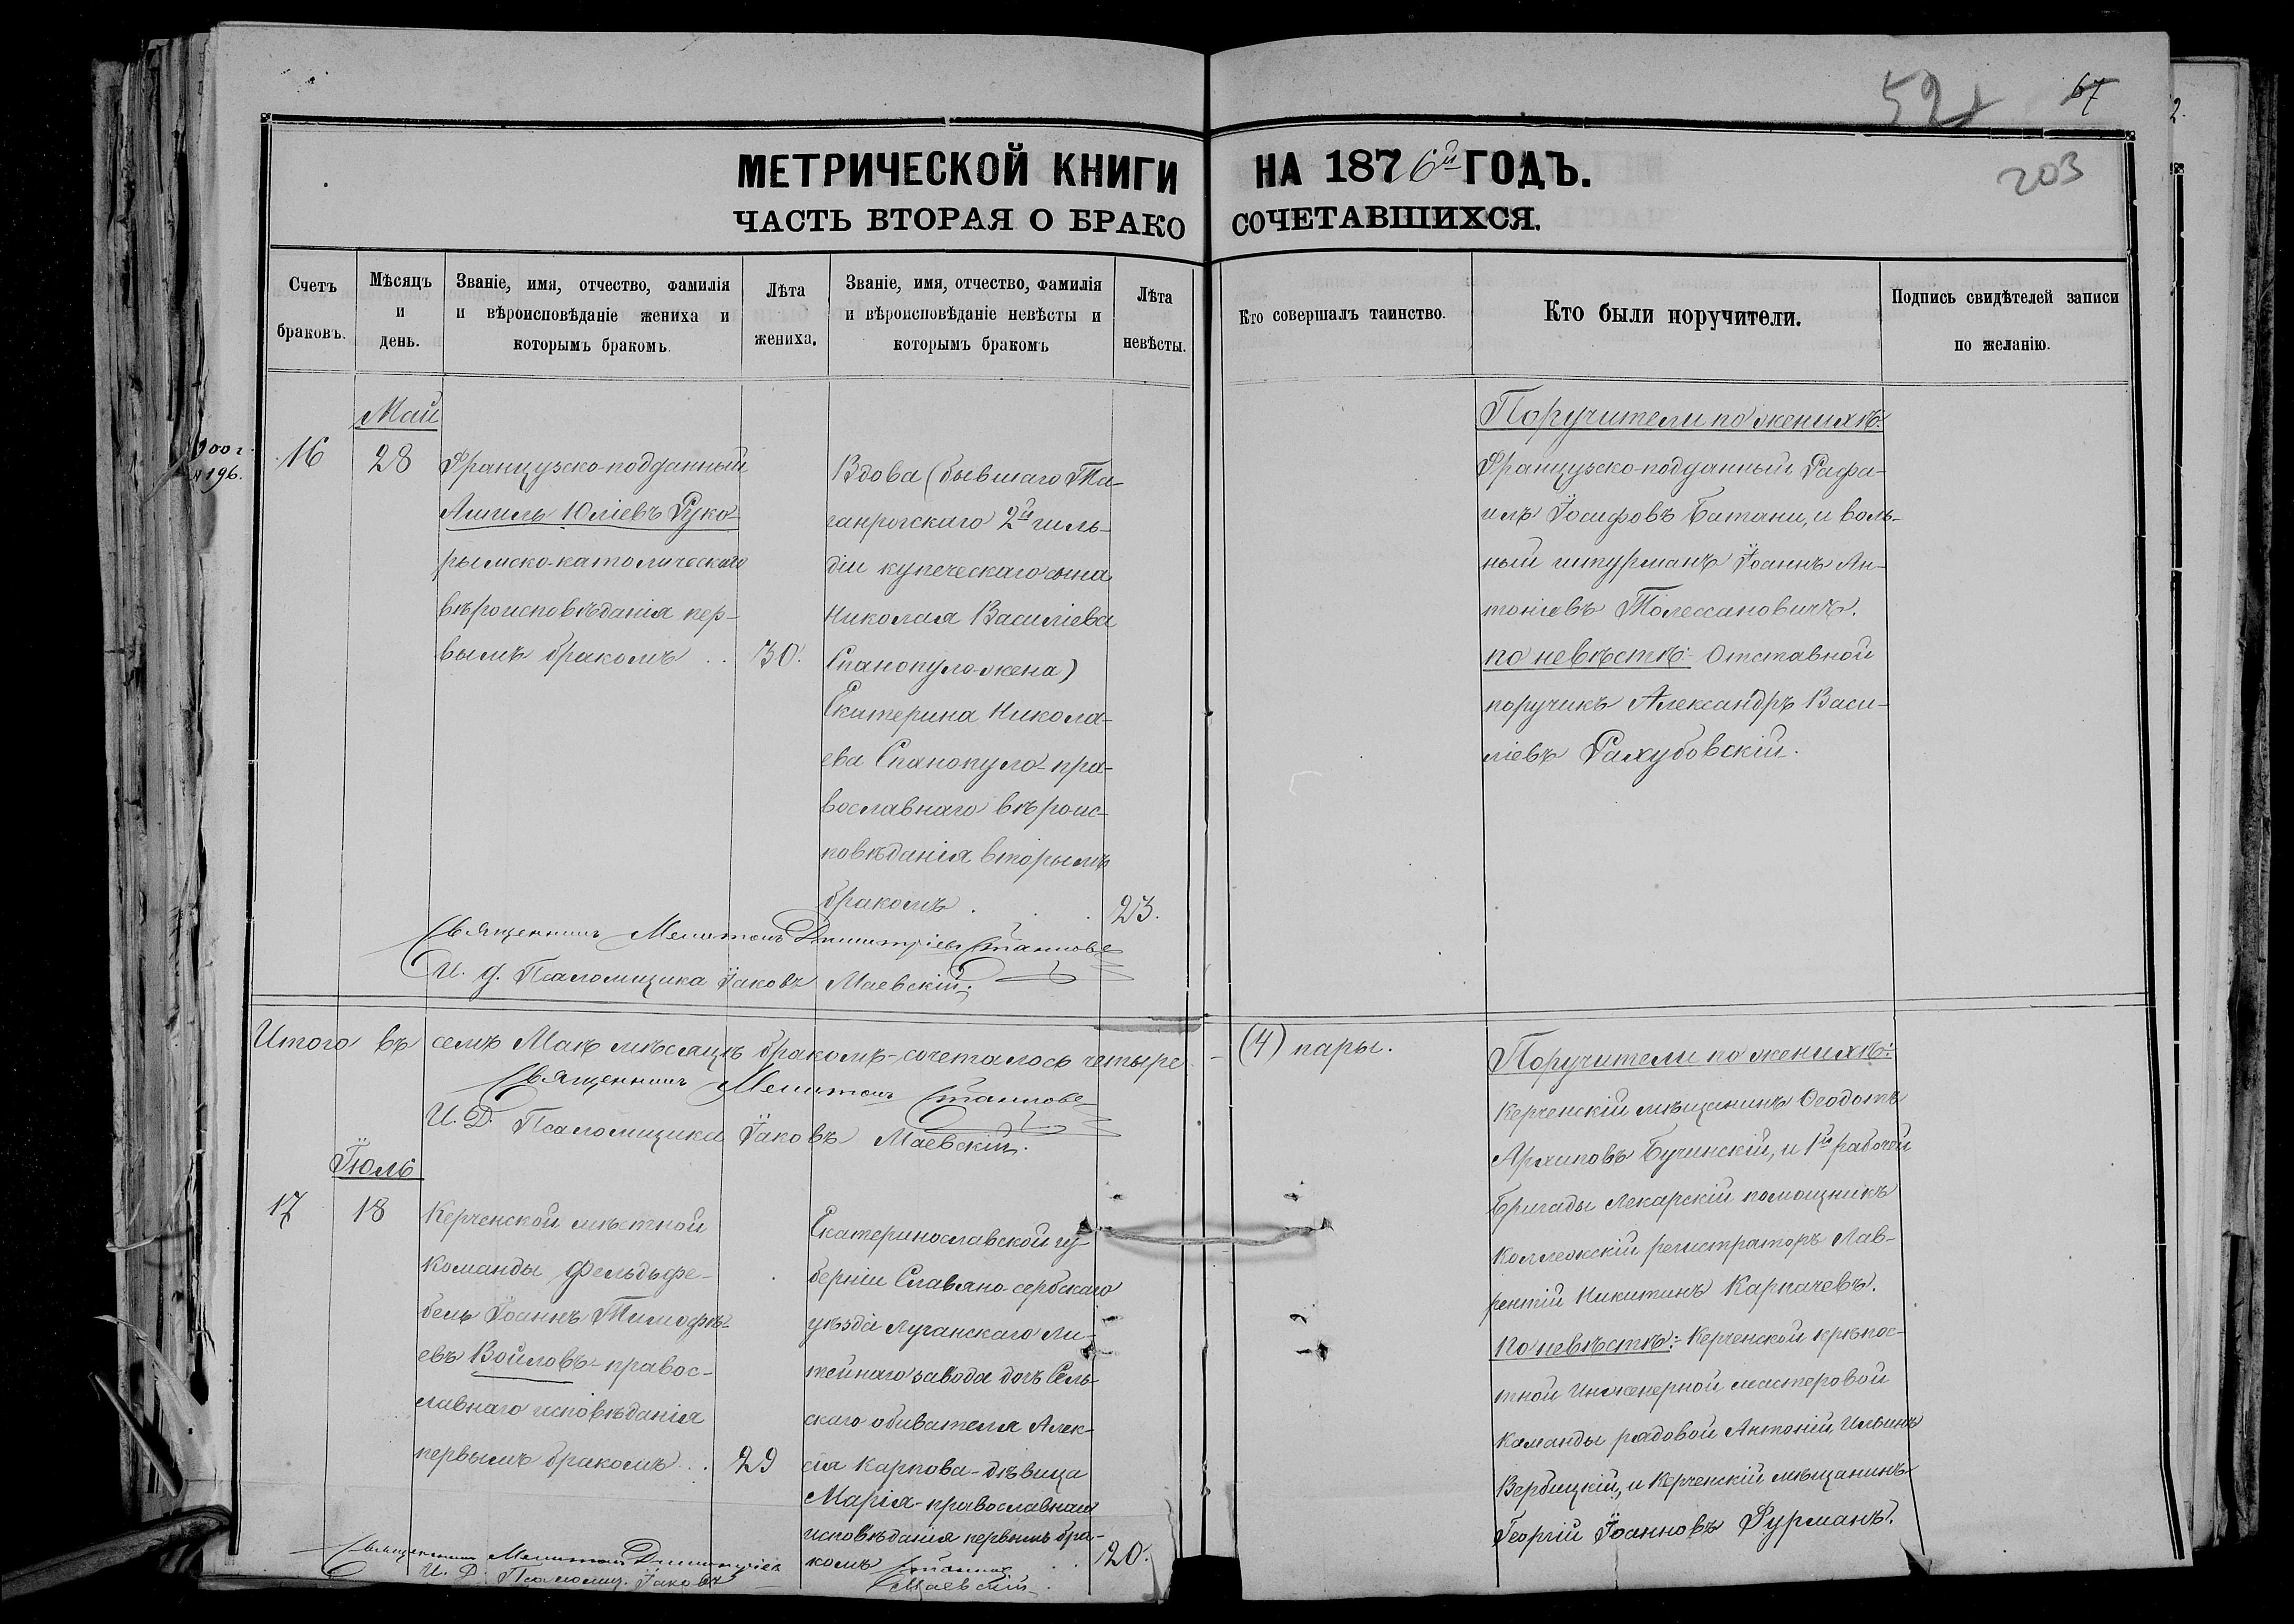 52
67
203
МЕТРИЧЕСКОЙ КНИГИ НА 1876й ГОДЪ.
ЧАСТЬ ВТОРАЯ О БРАКОСОЧЕТАВШИХСЯ.
Счетъ браковъ.
Мѣсяцъ и день.
Званіе, имя, отчество, фамилія
и вѣроисповѣданіе жениха и
которымъ бракомъ.
Лѣта жениха.
Званіе, имя, отчество, фамилія
и вѣроисповѣданіе невѣсты и
которымъ бракомъ
Лѣта невѣсты.
Кто совершалъ таинство.
Кто были поручители.
Подпись свидѣтелей записи
по желанію.
196.
Май
16
28
Французско-подданный
Ашиль Юліевъ Руко-
рымско-католическаго
вѣроисповѣданія пер-
вымъ бракомъ . .
30.
Вдова (бывшаго Та-
ганрогскаго 2й гиль-
діи купеческаго сына
Николая Василіева
Спанопуло-жена)
Екатерина Никола-
ева Спанопуло-пра-
вославнаго вѣроис-
повѣданія вторымъ
бракомъ .
23.
Поручители по женихѣ:
Французско-подданный Рафа-
илъ Іосифовъ Батани, и воль-
ный штурманъ Іоаннъ Ан-
тоніевъ Толессановичъ.
по невѣстѣ: Отставной
поручикъ Александръ Васи-
ліевъ Рахубовскій.
Священникъ Мелитонъ Димитріевъ
И. д. Псаломщика Іаковъ Маевскій.
Итого въ семъ Маѣ мѣсяцѣ бракомъ-сочеталось четыре - (4) пары.
Священникъ Мелитонъ
И. Д. Псаломщика Іаковъ Маевскій.
Іюль
17
18
Керченской мѣстной
команды Фельдьфе-
бель Іоаннъ Тимофѣ-
евъ Войловъ-правос-
лавнаго исповѣданія
первымъ бракомъ . .
29
Екатеринославской гу-
берніи Славяно-сербскаго
уѣзда Луганскаго Ли-
тейнаго завода дочь Сель-
скаго обивателя Алек-
сія Карпова-дѣвица
Марія-православнаго
исповѣданія первымъ бра-
комъ
20.
Поручители по женихѣ:
Керченскій мѣщанинъ Ѳеодотъ
Архиповъ Бучинскій, и 1й рабочей
бригады лекарскій помощникъ
Коллежскій регистраторъ Лав-
рентій Никитинъ Карпачевъ.
По невѣстѣ: Керченской крѣпос-
тной Инженерной мастеровой
команды рядовой Антоній Ильинъ
Вербицкій, и Керченскій мѣщанинъ
Георгій Іоанновъ Фурманъ.
Священникъ Мелитонъ Димитріевъ
И. Д. Псаломщ. Іаковъ Маевскій